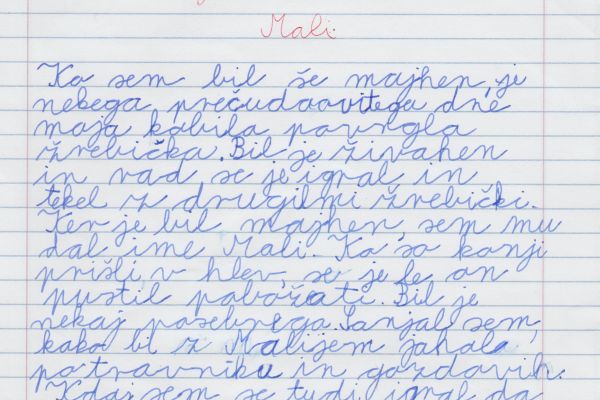 Mali
Ko sem bil še majhen, je
nekega prečudovitega dne
moja kobila povrgla
žrebička. Bil je živahen
in rad se je igral in
tekel z drugilmi žrebički.
Ker je bil majhen, sem mu
dal ime Mali. Ko so konji
prišli v hlev, se je le on
pustil pobožati. Bil je
nekaj posebnega. Sanjal sem,
kako bi z Malijem jahala
po travniku in gozdovih.
Kdaj sem se tudi igral da